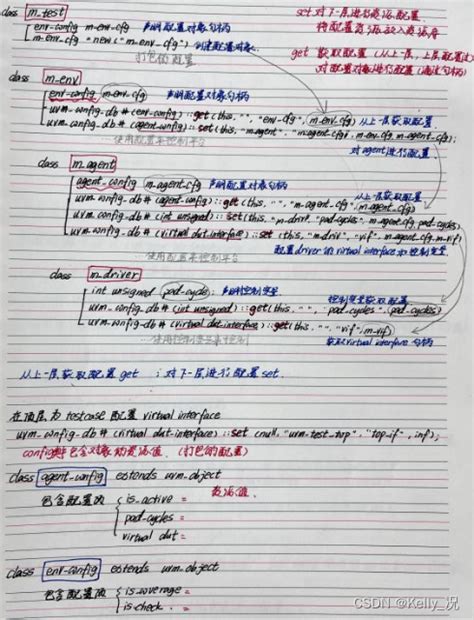 class m_test
set 对下一层进行资源配置.
env_config m_env_cfg 声明配置对象句柄
将配置资源放入资源库
m_env_cfg = new("m_env_cfg") 创建配置对象.
打包的配置
get 获取配置 (从上一层, 上层配置过)
对配置对象进行配置 (通过句柄)
class m_env
env_config m_env_cfg 声明配置对象句柄
uvm_config_db #(env_config) ::get(this, "", "env_cfg", m_env_cfg) 从上一层获取配置.
uvm_config_db #(agent_config)::set(this, "m_agent", "m_agent_cfg", m_env_cfg.m_agent_cfg);
使用配置来控制平台
对agent进行配置
class m_agent
agent_config m_agent_cfg 声明配置对象句柄
从上一层获取配置
uvm_config_db #(agent_config) ::get(this, "", "m_agent_cfg", m_agent_cfg)
uvm_config_db #(int unsigned) ::set(this, "m_driv", "pad_cycles", m_agent_cfg.pad_cycles)
uvm_config_db #(virtual dut_interface) ::set (this, "m_driv", "vif", m_agent_cfg.m_vif)
使用配置来控制平台
配置driver的virtual interface和控制变量
class m_driver
int unsigned pad_cycle; 声明控制变量
控制变量获取配置
uvm_config_db #(int unsigned) ::get(this, "", "pad_cycles", pad_cycles)
uvm_config_db #(virtual dut_interface)::get(this, "", "vif", m_vif)
使用控制变量来控制
获取virtual interface句柄
从上一层获取配置 get ; 对下一层进行配置 set.
在顶层为 testcase 配置 virtual interface
uvm_config_db #(virtual dut_interface) ::set (null, "uvm_test_top", "top_if", inf);
config类中包含对象的资源值. (打包的配置)
class agent_config extends uvm_object
包含配置值 is_active = 资源值.
pad_cycles =
virtual dut =
class env_config extends uvm_object
包含配置值 is_coverage =
is_check =
CSDN @Kelly_况